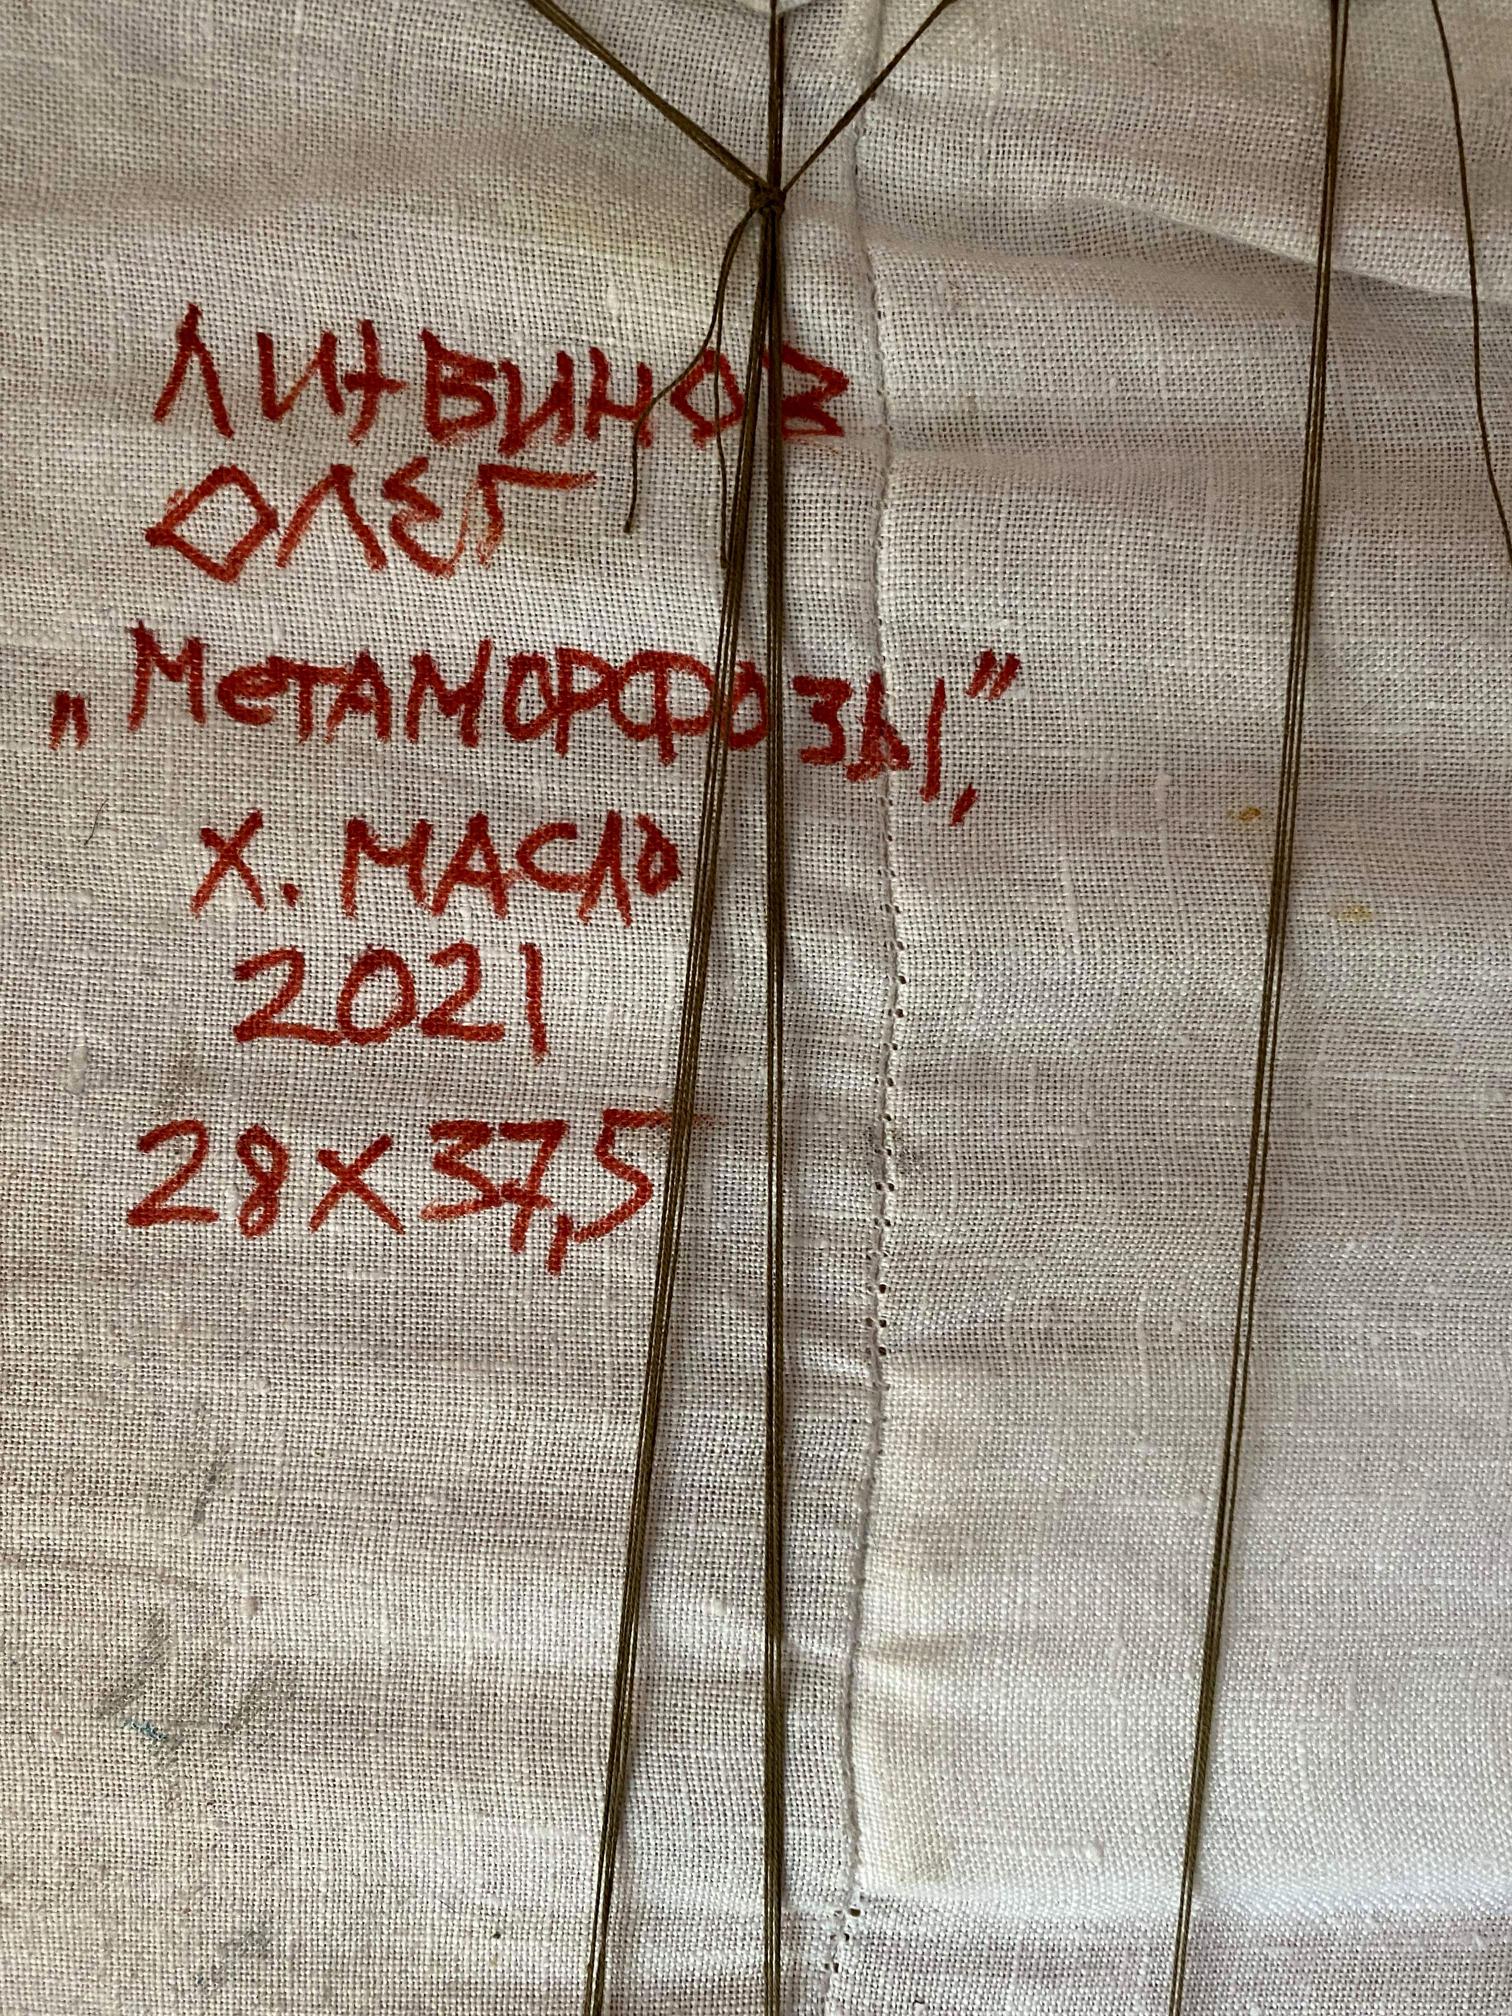 ЛИТВИНОВ
ОЛЕГ
„МЕТАМОРФОЗЫ",
Х. МАСЛО
2021
28Х37,5